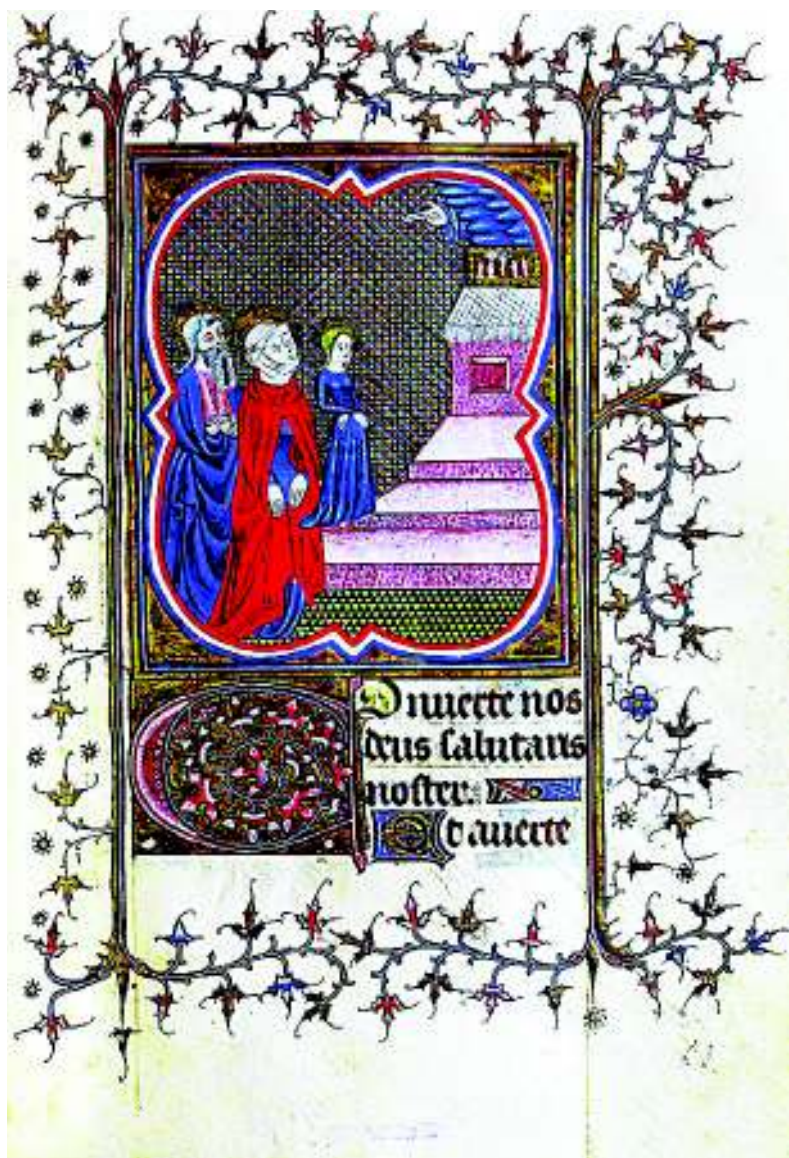 Conuerte nos
deus salutaris
noster.
Et auerte